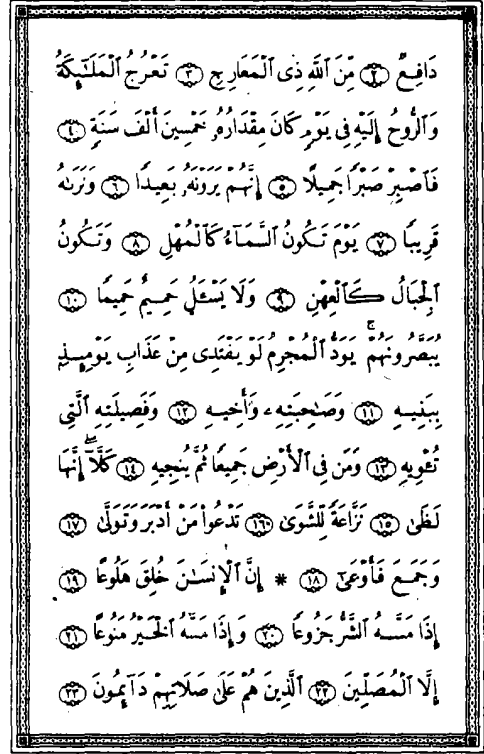 دَافِعٌ ۝٢ مِّنَ ٱللَّهِ ذِى ٱلْمَعَارِجِ ۝٣ تَعْرُجُ ٱلْمَلَٰٓئِكَةُ
وَٱلرُّوحُ إِلَيْهِ فِى يَوْمٍ كَانَ مِقْدَارُهُۥ خَمْسِينَ أَلْفَ سَنَةٍ ۝٤
فَٱصْبِرْ صَبْرًا جَمِيلًا ۝٥ إِنَّهُمْ يَرَوْنَهُۥ بَعِيدًا ۝٦ وَنَرَىٰهُ
قَرِيبًا ۝٧ يَوْمَ تَكُونُ ٱلسَّمَآءُ كَٱلْمُهْلِ ۝٨ وَتَكُونُ
ٱلْجِبَالُ كَٱلْعِهْنِ ۝٩ وَلَا يَسْـَٔلُ حَمِيمٌ حَمِيمًا ۝١٠
يُبَصَّرُونَهُمْ ۚ يَوَدُّ ٱلْمُجْرِمُ لَوْ يَفْتَدِى مِنْ عَذَابِ يَوْمِئِذٍۭ
بِبَنِيهِ ۝١١ وَصَٰحِبَتِهِۦ وَأَخِيهِ ۝١٢ وَفَصِيلَتِهِ ٱلَّتِى
تُـْٔوِيهِ ۝١٣ وَمَن فِى ٱلْأَرْضِ جَمِيعًا ثُمَّ يُنجِيهِ ۝١٤ كَلَّآ ۖ إِنَّهَا
لَظَىٰ ۝١٥ نَزَّاعَةً لِّلشَّوَىٰ ۝١٦ تَدْعُوا۟ مَنْ أَدْبَرَ وَتَوَلَّىٰ ۝١٧
وَجَمَعَ فَأَوْعَىٰٓ ۝١٨ * إِنَّ ٱلْإِنسَٰنَ خُلِقَ هَلُوعًا ۝١٩
إِذَا مَسَّهُ ٱلشَّرُّ جَزُوعًا ۝٢٠ وَإِذَا مَسَّهُ ٱلْخَيْرُ مَنُوعًا ۝٢١
إِلَّا ٱلْمُصَلِّينَ ۝٢٢ ٱلَّذِينَ هُمْ عَلَىٰ صَلَاتِهِمْ دَآئِمُونَ ۝٢٣